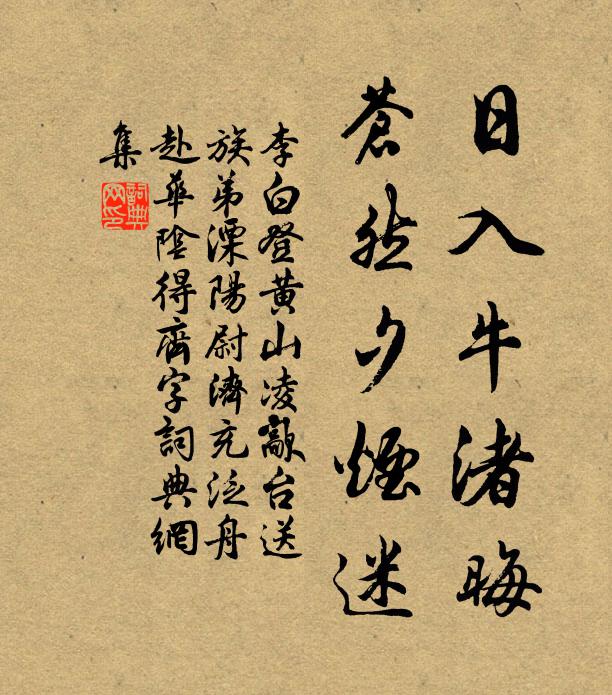 日入牛渚晦
蒼然夕煙迷
李白登黄山凌歊台送
族弟溧陽尉濟充泛舟
赴華陰得齊字詞典網
集
詞典
网印